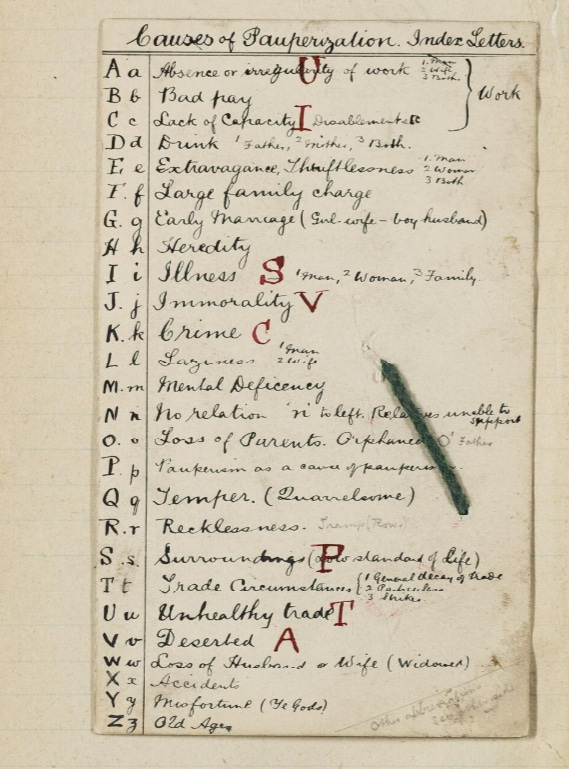 Causes of Pauperization. Index Letters.
A a Absence or irregularity of work U 1. Man 2 Wife 3 Both } Work
B b Bad pay
C c Lack of Capacity I Disablement &c
D d Drink 1 Father, 2 Mother, 3 Both.
E e Extravagance, Thriftlessness 1. Man 2 Woman 3 Both
F. f Large family charge
G. g Early Marriage (Girl-wife – boy husband)
H h Heredity
I i Illness S 1 Man, 2 Woman, 3 Family.
J. j Immorality V
K. k Crime C
L l Laziness 1 Man 2 Wife
M. m Mental Deficency
N n No relation 'n' to left. Relatives unable to support
O. o Loss of Parents. Orphaned O' Father
P. p Pauperism as a cause of pauperism.
Q q Temper. (Quarrelsome)
R. r Recklessness. Tramp (Rover)
S s. Surroundings (Low standard of life) P
T t Trade Circumstances { 1 General decay of trade 2 3 Strikes
U u Unhealthy trade T
V v Deserted A
W w Loss of Husband or Wife (Widowed)
X x Accidents
Y y Misfortune (Ye Gods)
Z z Old Age
Other abbreviations